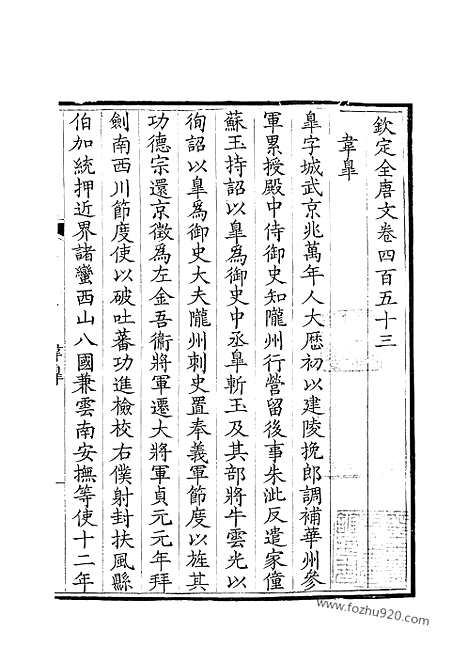 欽定全唐文卷四百五十三
韋皋
皋字城武京兆萬年人大歷初以建陵挽郎調補華州參
軍累授殿中侍御史知隴州行營留後事朱泚反遣家僮
蘇玉持詔以皋為御史中丞皋斬玉及其部將牛雲光以
徇詔以皋為御史大夫隴州刺史置奉義軍節度以旌其
功德宗還京徵為左金吾衛將軍遷大將軍貞元元年拜
劍南西川節度使以破吐蕃功進檢校右僕射封扶風縣
伯加統押近界諸蠻西山八國兼雲南安撫等使十二年
韋皋
一
www.fozhu920.com